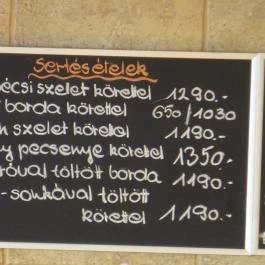 Sertésételek
écsi szelet körettel 1290.-
borda körettel 650/1030
n szelet körettel 1190.-
y pecsenye körettel 1350.-
róval töltött borda 1190.-
-sonkával töltött
körettel 1190.-